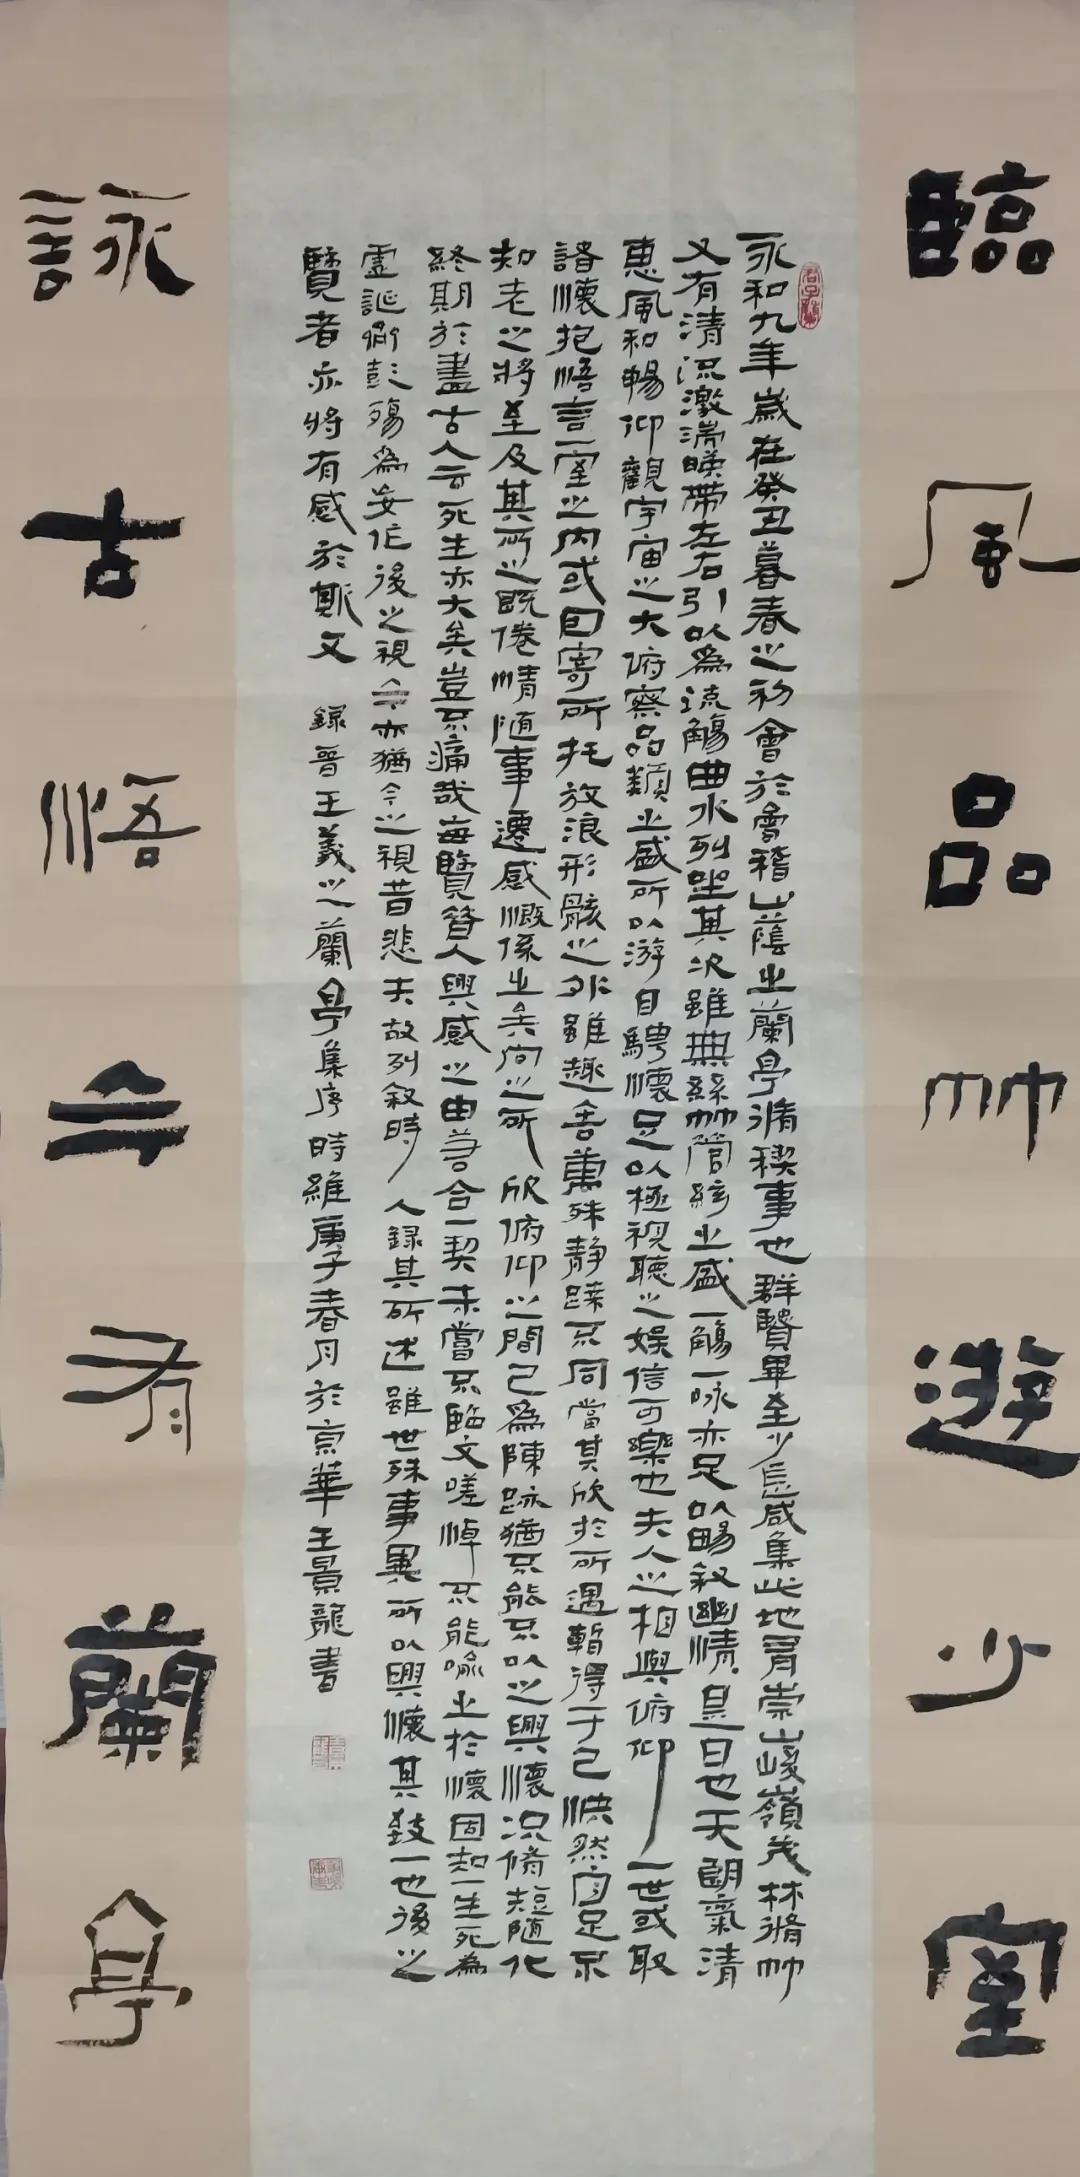 臨風品竹遊少室
永和九年歲在癸丑暮春之初會於會稽山蔭之蘭亭脩稧事也群賢畢至少長咸集此地有崇山峻嶺茂林脩竹
又有清流激湍暎帶左右引以為流觴曲水列坐其次雖無絲竹管絃之盛一觴一咏亦足以暢敘幽情是日也天朗氣清
惠風和暢仰觀宇宙之大俯察品類之盛所以游目騁懷足以極視聽之娛信可樂也夫人之相與俯仰一世或取
諸懷抱悟言一室之內或因寄所托放浪形骸之外雖趣舍萬殊靜躁不同當其欣於所遇暫得于己怏然自足不
知老之將至及其所之既倦情隨事遷感慨係之矣向之所欣俯仰之間已為陳跡猶不能不以之興懷況脩短隨化
終期於盡古人云死生亦大矣豈不痛哉每覽昔人興感之由若合一契未嘗不臨文嗟悼不能喻之於懷固知一生死為
虛誕齊彭殤為妄作後之視今亦猶今之視昔悲夫故列敘時人録其所述雖世殊事異所以興懷其致一也後之
覽者亦將有感於斯文 録晉王羲之蘭亭集序 時維庚子春月於京華王景龍書
詠古悟今有蘭亭